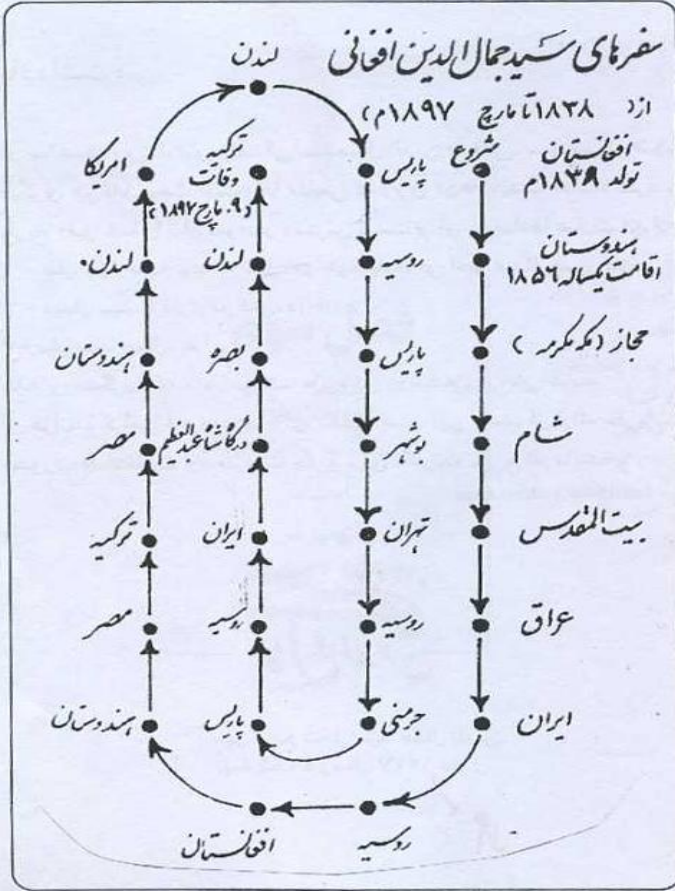 سفرهای سید جمال الدین افغانی
از (۱۸۳۸ تا مارچ ۱۸۹۷م)
شروع
افغانستان
تولد ۱۸۳۸م
هندوستان
اقامت یکساله ۱۸۵۶
حجاز (مکه مکرمه)
شام
بیت المقدس
عراق
ایران
روسیه
افغانستان
هندوستان
مصر
ترکیه
مصر
هندوستان
لندن
امریکا
لندن
پاریس
روسیه
پاریس
بوشهر
تهران
روسیه
جرمنی
پاریس
روسیه
ایران
درگاه شاه عبدالعظیم
بصره
لندن
ترکیه
وفات
(۹ مارچ ۱۸۹۷)